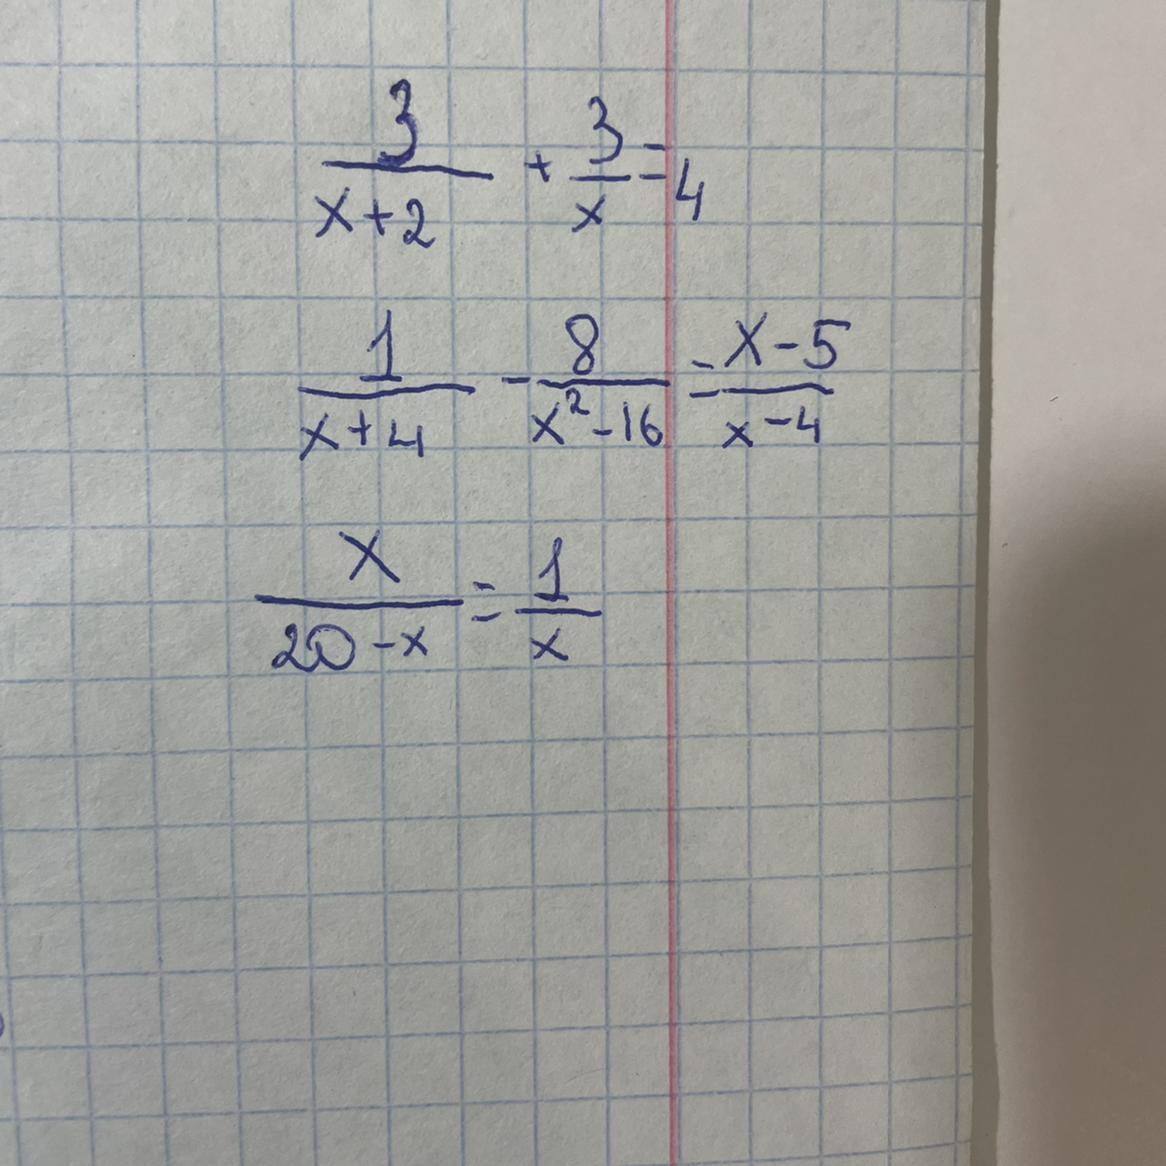 3/(x+2) + 3/x = 4
1/(x+4) - 8/(x²-16) = (x-5)/(x-4)
x/(20-x) = 1/x